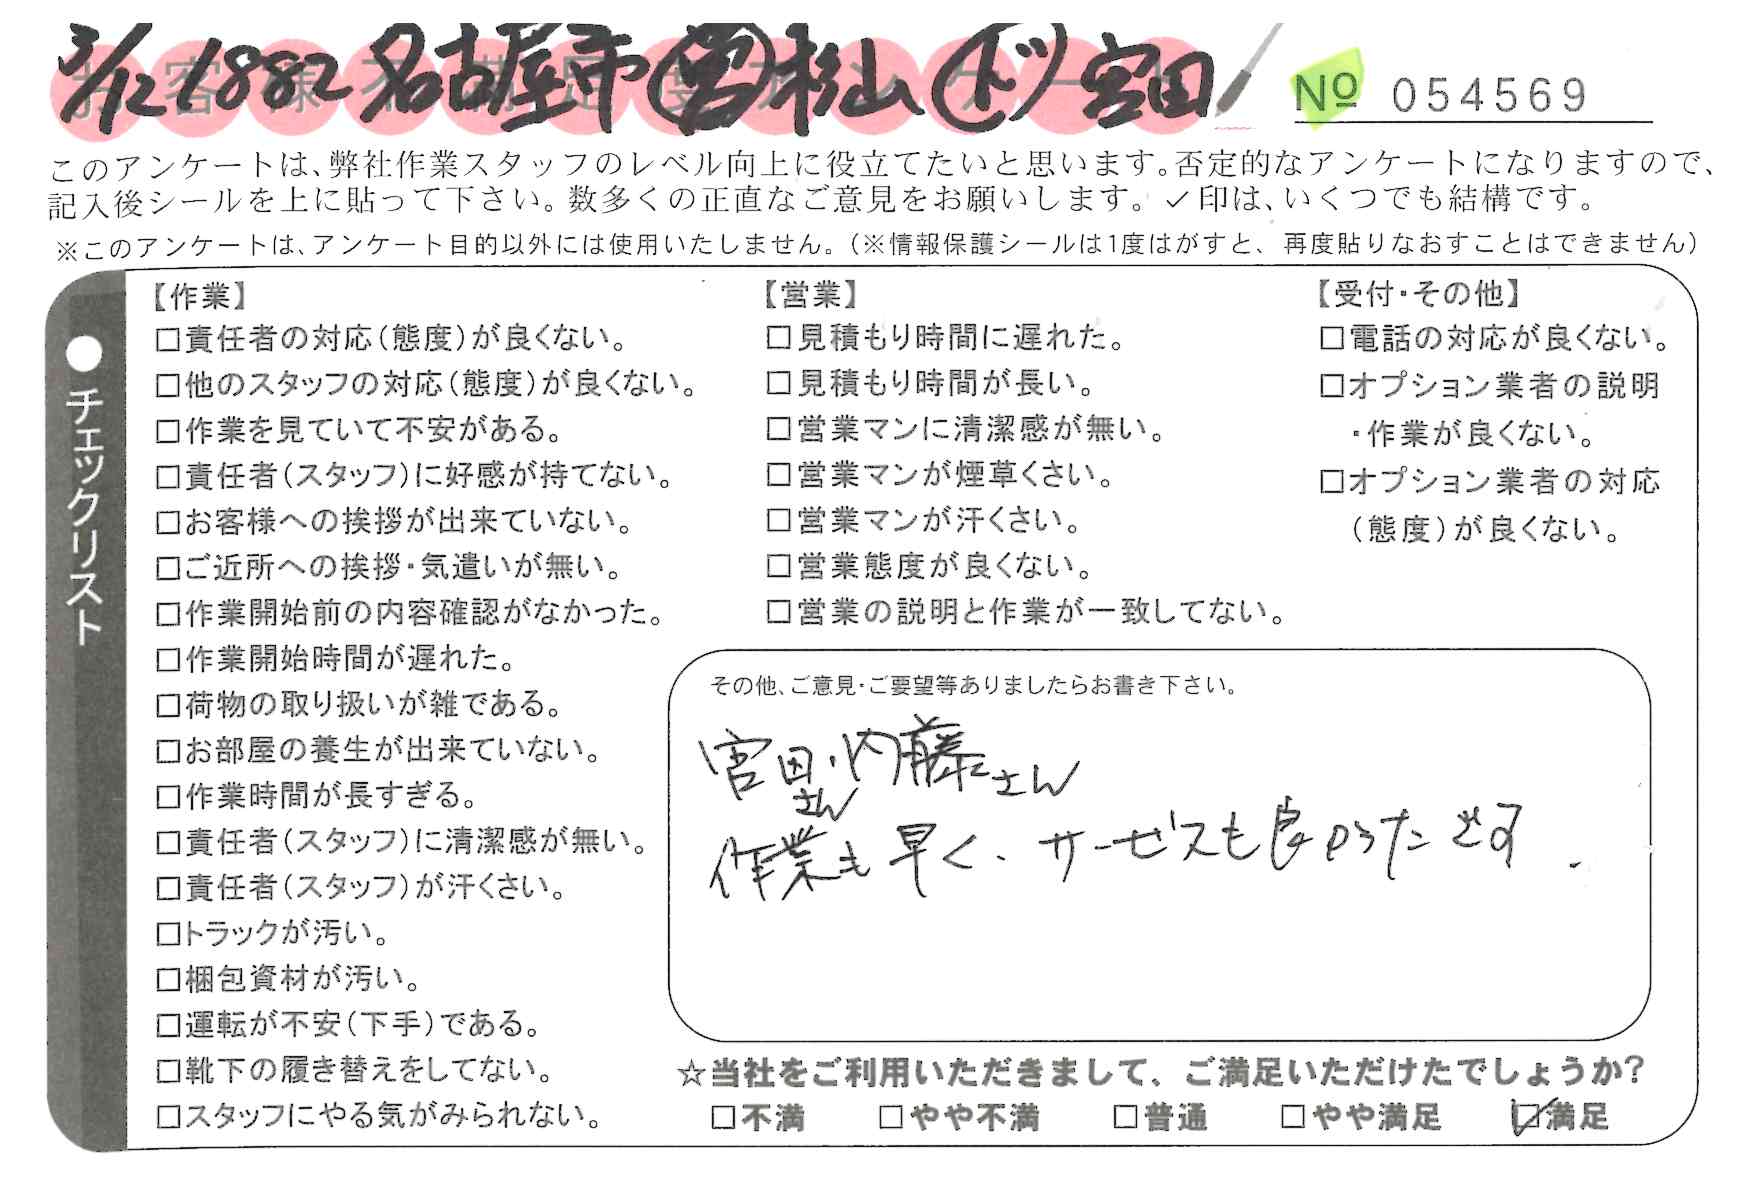 3/12 1882 名古屋市 営 松山 ドツ 宮田
お客様不満足度アンケート
№ 054569
このアンケートは、弊社作業スタッフのレベル向上に役立てたいと思います。否定的なアンケートになりますので、
記入後シールを上に貼って下さい。数多くの正直なご意見をお願いします。✓印は、いくつでも結構です。
※このアンケートは、アンケート目的以外には使用いたしません。（※情報保護シールは1度はがすと、再度貼りなおすことはできません）
●チェックリスト
【作業】
□責任者の対応（態度）が良くない。
□他のスタッフの対応（態度）が良くない。
□作業を見ていて不安がある。
□責任者（スタッフ）に好感が持てない。
□お客様への挨拶が出来ていない。
□ご近所への挨拶・気遣いが無い。
□作業開始前の内容確認がなかった。
□作業開始時間が遅れた。
□荷物の取り扱いが雑である。
□お部屋の養生が出来ていない。
□作業時間が長すぎる。
□責任者（スタッフ）に清潔感が無い。
□責任者（スタッフ）が汗くさい。
□トラックが汚い。
□梱包資材が汚い。
□運転が不安（下手）である。
□靴下の履き替えをしてない。
□スタッフにやる気がみられない。
【営業】
□見積もり時間に遅れた。
□見積もり時間が長い。
□営業マンに清潔感が無い。
□営業マンが煙草くさい。
□営業マンが汗くさい。
□営業態度が良くない。
□営業の説明と作業が一致してない。
【受付・その他】
□電話の対応が良くない。
□オプション業者の説明
・作業が良くない。
□オプション業者の対応
（態度）が良くない。
その他、ご意見・ご要望等ありましたらお書き下さい。
宮田さん・内藤さん
作業も早く、サービスも良かったです.
☆当社をご利用いただきまして、ご満足いただけたでしょうか?
□不満 □やや不満 □普通 □やや満足 ☑満足